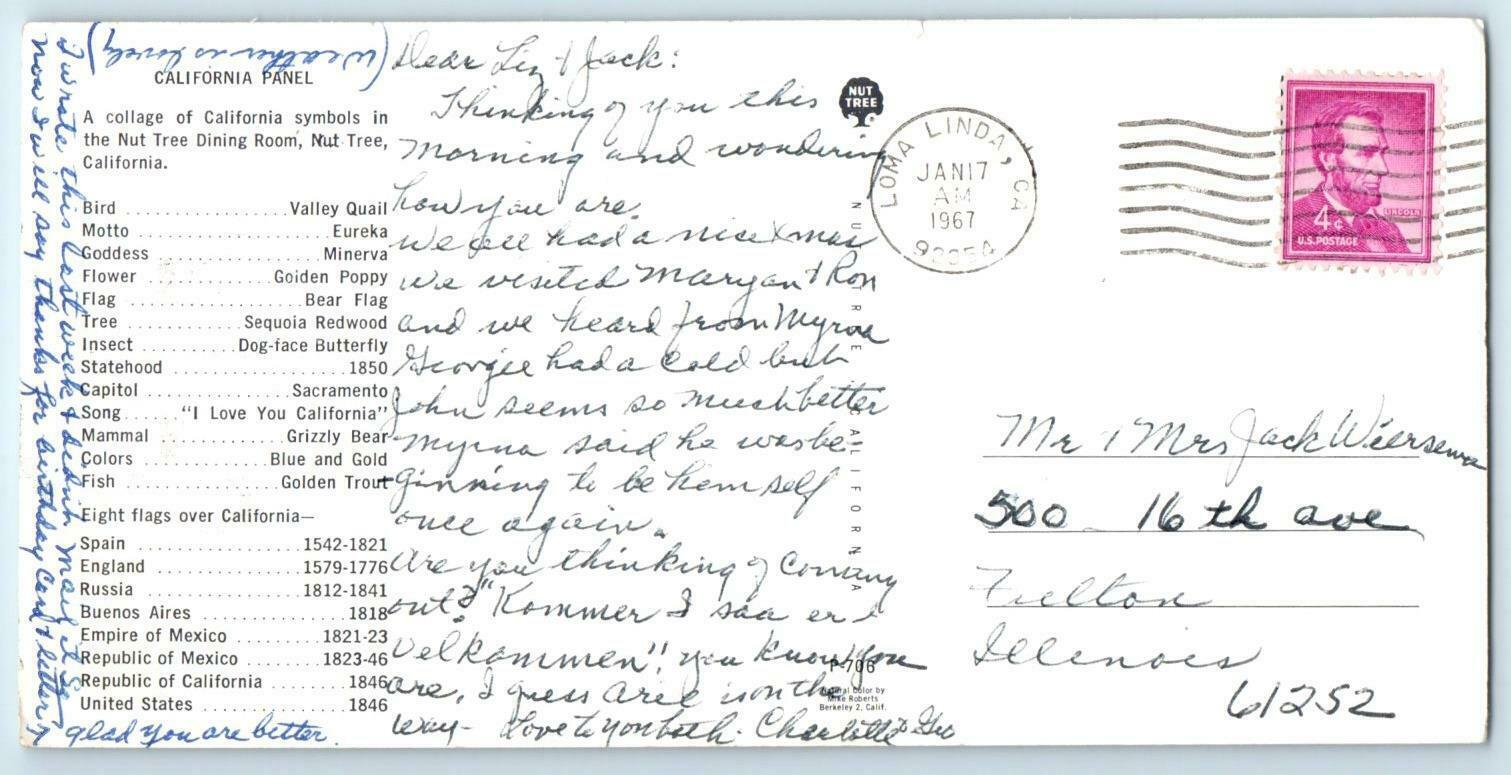 (Weather is lovely)
CALIFORNIA PANEL
A collage of California symbols in
the Nut Tree Dining Room, Nut Tree,
California.
Bird .............. Valley Quail
Motto .................. Eureka
Goddess ............... Minerva
Flower ............ Golden Poppy
Flag ................. Bear Flag
Tree ........... Sequoia Redwood
Insect .......... Dog-face Butterfly
Statehood .................. 1850
Capitol ............. Sacramento
Song ...... "I Love You California"
Mammal ............ Grizzly Bear
Colors ............ Blue and Gold
Fish ............... Golden Trout
Eight flags over California—
Spain ................ 1542-1821
England .............. 1579-1776
Russia ............... 1812-1841
Buenos Aires .............. 1818
Empire of Mexico ........ 1821-23
Republic of Mexico ....... 1823-46
Republic of California ...... 1846
United States .............. 1846
I wrote this last week & didnt mail it so
now I will say thanks for birthday card & letter
glad you are better.
Dear Liz & Jack:
Thinking of you this
morning and wondering
how you are.
We all had a nice Xmas
We visited Maryan & Ron
and we heard from Myrna
Georgie had a cold but
John seems so much better
Myrna said he was be-
ginning to be himself
once again.
Are you thinking of coming
out? "Kommer I saa er i
Velkommen". you know you
are. I guess Arie is on the
way - Love to you both. Charlotte & Geo
NUT
TREE
NUT TREE CALIFORNIA
P-706
Natural Color by
Mike Roberts
Berkeley 2, Calif.
LOMA LINDA, CA
JAN 17
AM
1967
92354
4¢
LINCOLN
U.S. POSTAGE
Mr & Mrs Jack Wiersema
500 - 16th ave
Fulton
Illinois
61252